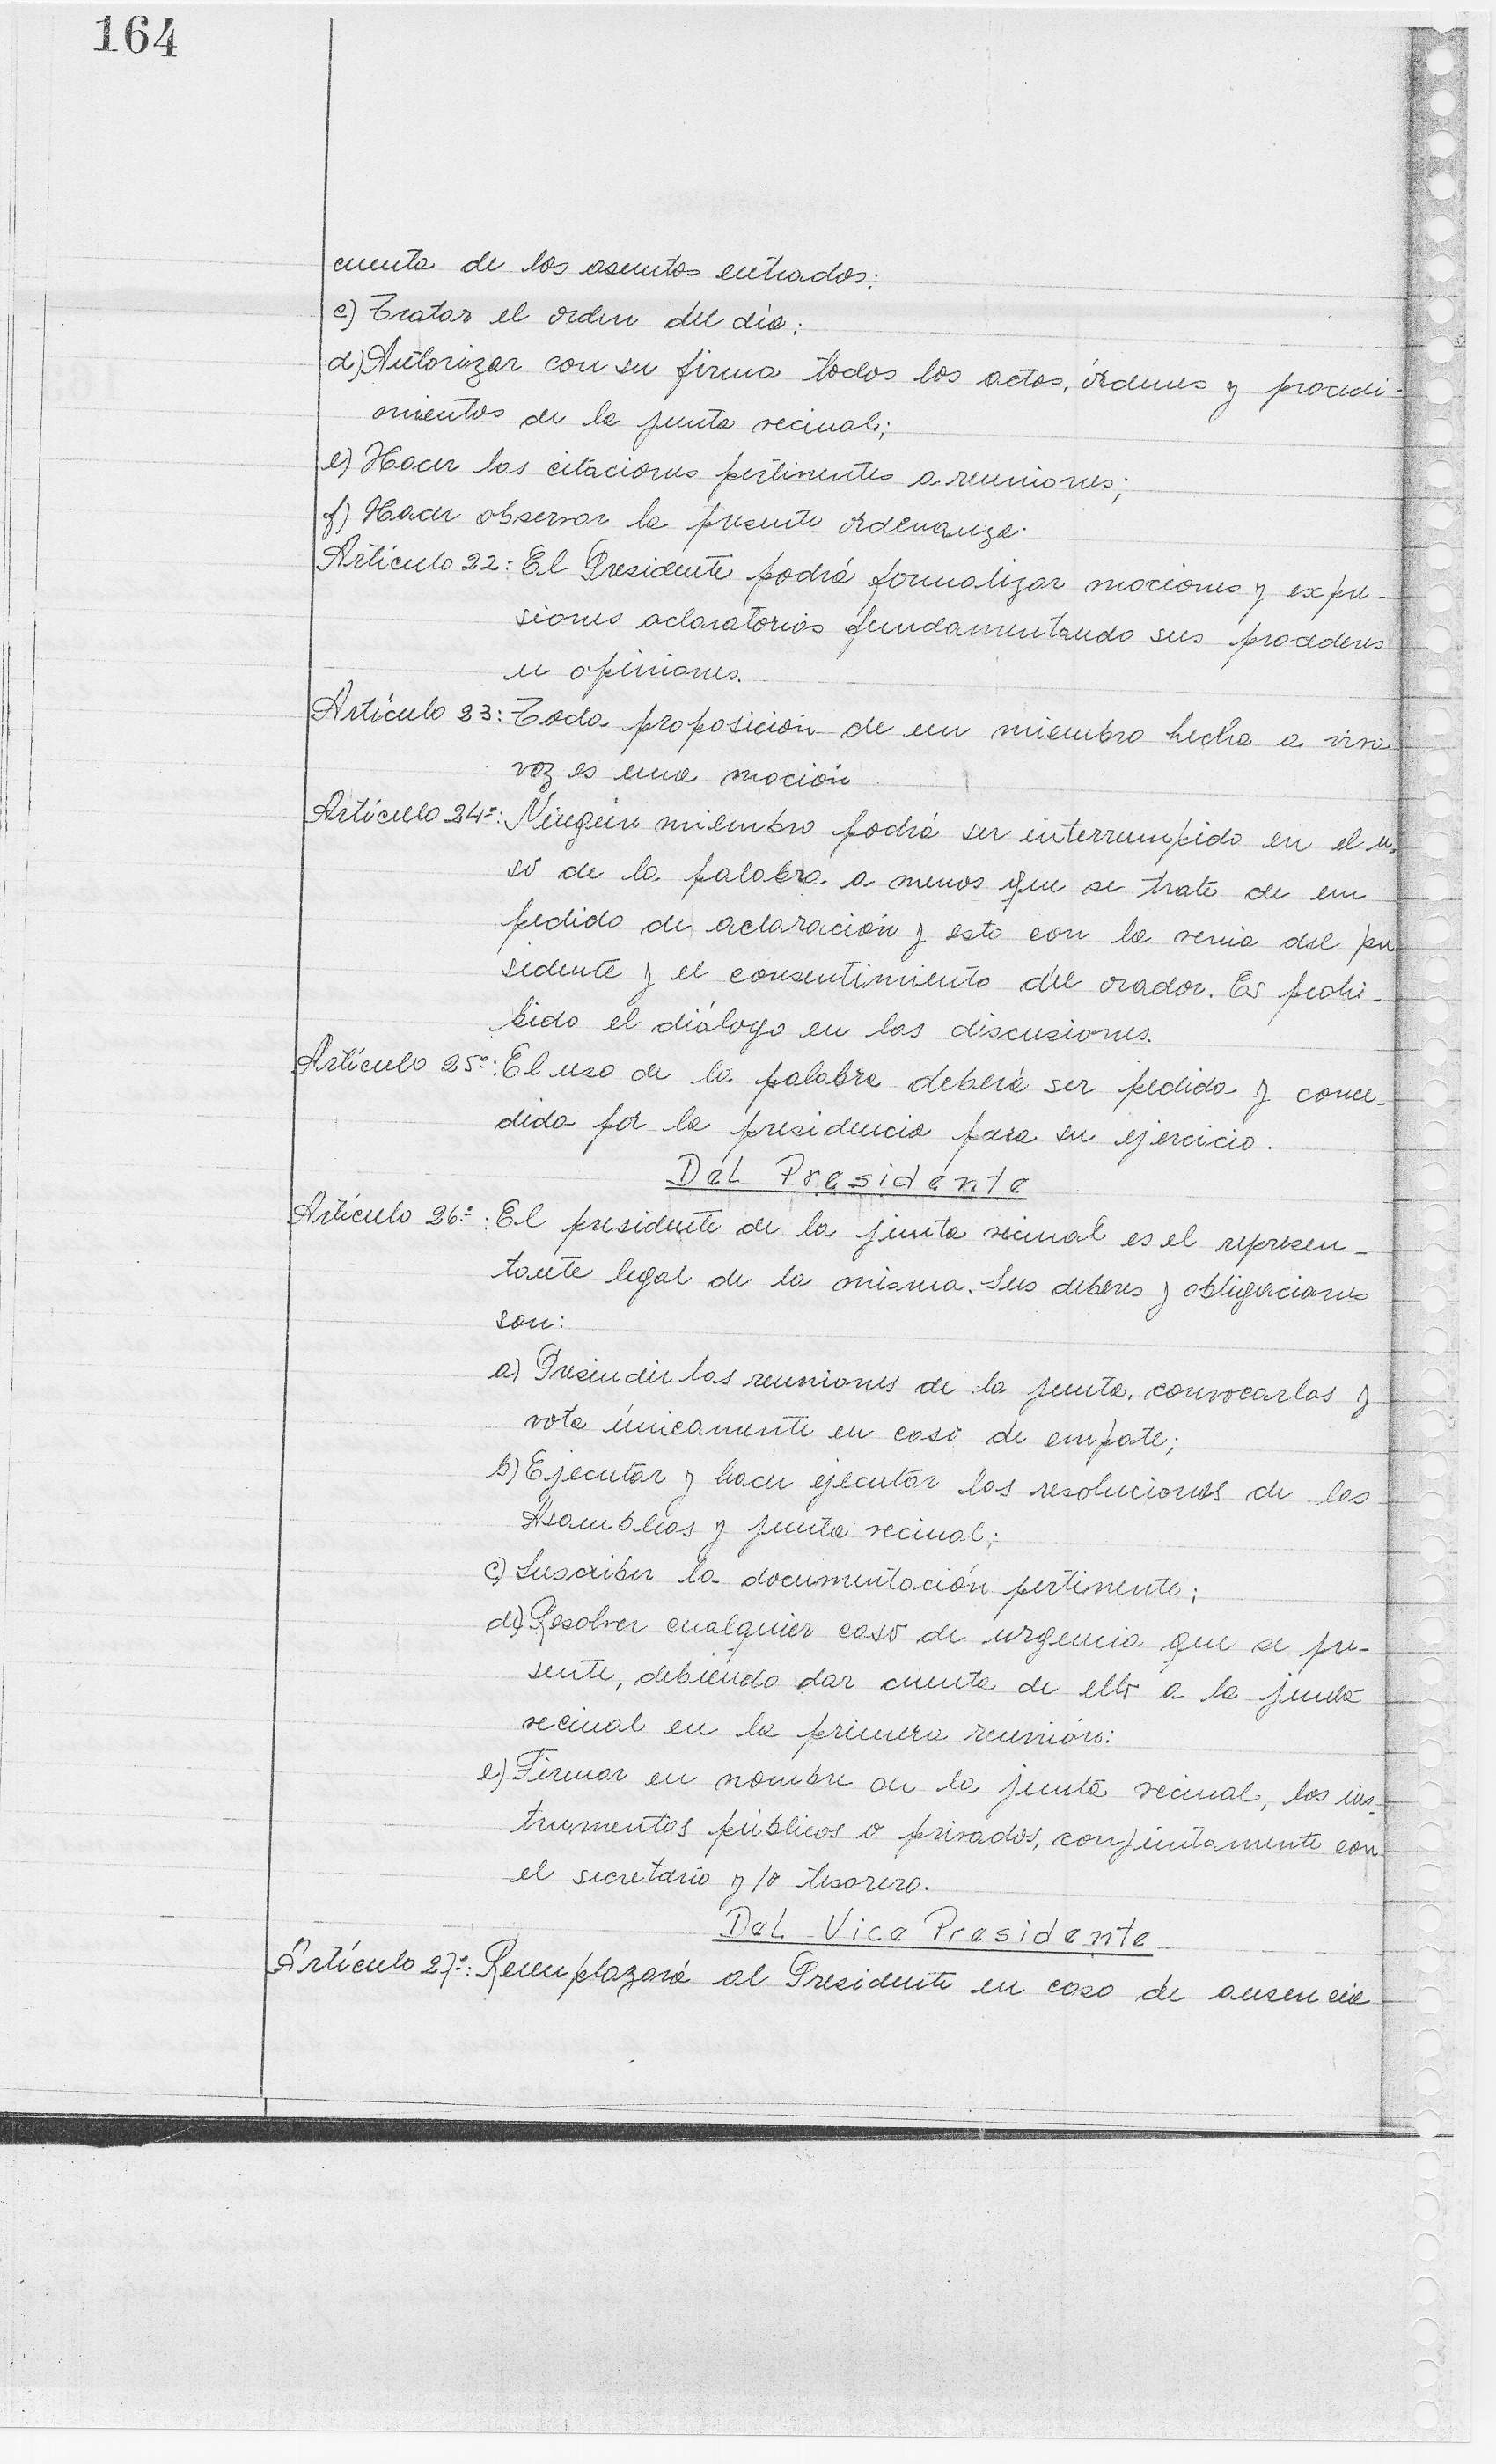 164
cuenta de los asuntos entrados;
c) Tratar el orden del día;
d) Autorizar con su firma todos los actos, órdenes y procedi-
mientos de la junta vecinal;
e) Hacer las citaciones pertinentes a reuniones;
f) Hacer observar la presente ordenanza.
Artículo 22: El Presidente podrá formalizar mociones y expre-
siones aclaratorias fundamentando sus procederes
u opiniones.
Artículo 23: Toda proposición de un miembro hecha a viva
voz es una moción
Artículo 24º: Ningún miembro podrá ser interrumpido en el u-
so de la palabra a menos que se trate de un
pedido de aclaración y esto con la venia del pre
sidente y el consentimiento del orador. Es prohi-
bido el diálogo en las discusiones.
Artículo 25º: El uso de la palabra deberá ser pedida y conce-
dida por la presidencia para su ejercicio.
Del Presidente
Artículo 26º: El presidente de la junta vecinal es el represen-
tante legal de la misma. Sus deberes y obligaciones
son:
a) Presindir las reuniones de la junta, convocarlas y
vota únicamente en caso de empate;
b) Ejecutar y hacer ejecutar las resoluciones de las
Asambleas y junta vecinal;
c) Suscribir la documentación pertinente;
d) Resolver cualquier caso de urgencia que se pre-
sente, debiendo dar cuenta de ello a la junta
vecinal en la primera reunión:
e) Firmar en nombre de la junta vecinal, los ins-
trumentos públicos o privados, conjuntamente con
el secretario y/o tesorero.
Del Vice Presidente
Artículo 27º: Reemplazará al Presidente en caso de ausencia